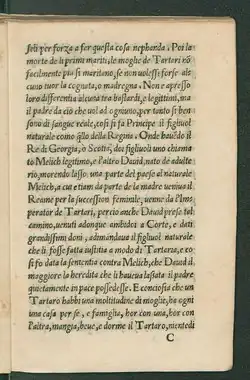 seli per forza a fer questa cosa nephanda. Poi la
morte de li primi mariti, le moglie de Tartari nō
facilmente piu si maritano, se non uolesse forse al-
cuno tuor la cognata, o madregna. Non e apresso
loro differentia alcuna tra bastardi, e legittimi, ma
il padre da ciò che uol ad ogniuno, per tanto si ben
sono di sangue reale, cosi si fa Principe il figliuol
naturale como q̃llo della Regina. Onde hauēdo il
Re de Georgia, o Scotia, doi figliuoli uno chiama
to Melich legitimo, e l'altro Dauid, nato de adulte
rio, morendo lasso una parte del paese al naturale
Melich, a cui etiam da parte de la madre ueniua il
Reame per la successione feminile, uenne da l'Im-
perator de Tartari, percio anche Dauid prese tal
camino, uenuti adonque ambidoi a Corte, e dati
grandissimi doni, adimandaua il figliuol naturale
che li fosse fatta iustitia a modo di Tartaria, e co
si fo data la sententia contra Melich, che Dauid il
maggiore la heredita che li haueua lassata il padre
quietamente in pace possedesse. E conciosia che un
Tartaro habbi una moltitudine di moglie, ha ogni
una casa per se, e famiglia, hor con una, hor con
l'altra, mangia, beue, e dorme il Tartaro, mentedi
C